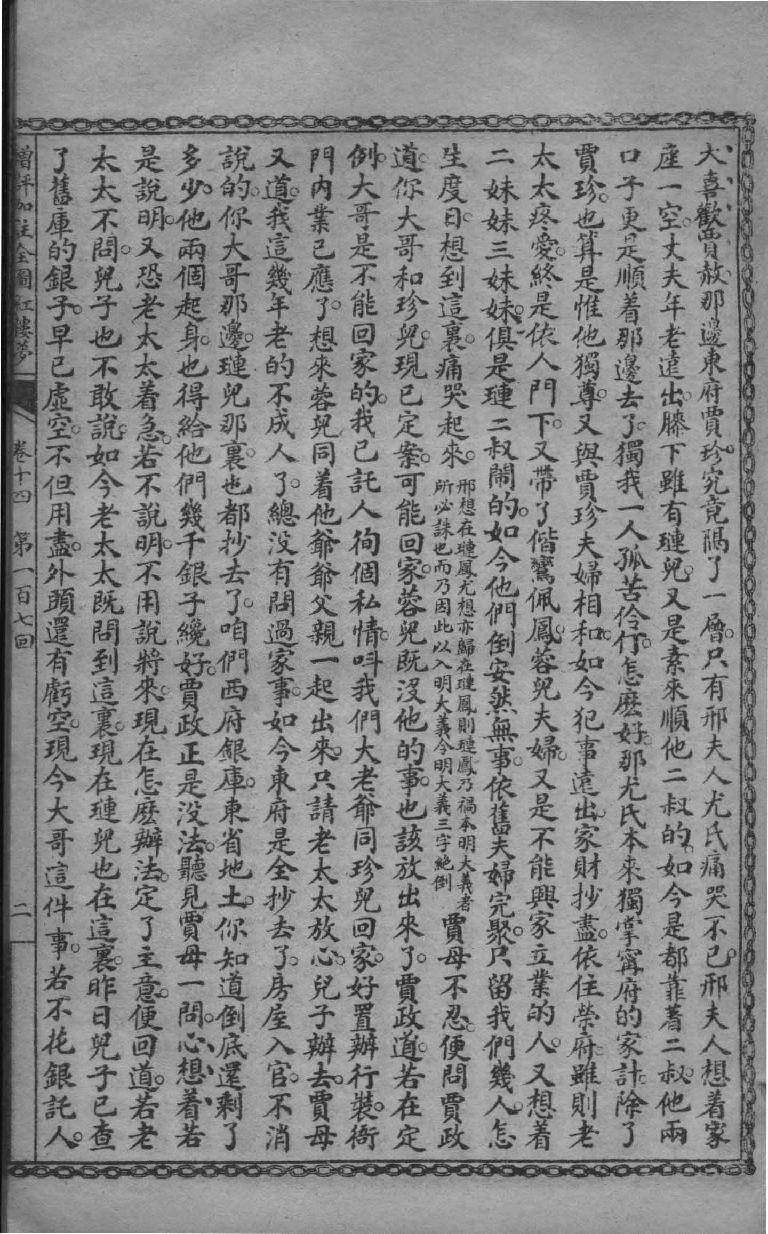 大喜歡賈赦那邊東府賈珍究竟隔了一層只有邢夫人尤氏痛哭不已邢夫人想着家
產一空丈夫年老遠出膝下雖有璉兒又是素來順他二叔的如今是都靠著二叔他兩
口子更是順着那邊去了獨我一人孤苦伶仃怎麽好那尤氏本來獨掌甯府的家計除了
賈珍也算是惟他獨尊又與賈珍夫婦相和如今犯事遠出家財抄盡依住榮府雖則老
太太疼愛終是依人門下又帶了偕鸞佩鳳蓉兒夫婦又是不能興家立業的人又想着
二妹妹三妹妹俱是璉二叔鬧的如今他們倒安然無事依舊夫婦完聚只留我們幾人怎
生度日想到這裏痛哭起來
邢想在璉鳳尤想亦歸在璉鳳則璉鳳乃禍本明大義者
所必誅也而乃因此以入明大義今明大義三字絶倒
賈母不忍便問賈政
道你大哥和珍兒現已定案可能回家蓉兒既沒他的事也該放出來了賈政道若在定
例大哥是不能回家的我已託人徇個私情叫我們大老爺同珍兒回家好置辦行裝衙
門內業已應了想來蓉兒同着他爺爺父親一起出來只請老太太放心兒子辦去賈母
又道我這幾年老的不成人了總沒有問過家事如今東府是全抄去了房屋入官不消
說的你大哥那邊璉兒那裏也都抄去了咱們西府銀庫東省地土你知道倒底還剩了
多少他兩個起身也得給他們幾千銀子纔好賈政正是沒法聽見賈母一問心想着若
是說明又恐老太太着急若不說明不用說將來現在怎麽辦法定了主意便回道若老
太太不問兒子也不敢說如今老太太既問到這裏現在璉兒也在這裏昨日兒子已查
了舊庫的銀子早已虛空不但用盡外頭還有虧空現今大哥這件事若不花銀託人
增評加註全圖紅樓夢 卷十四 第一百七回 二